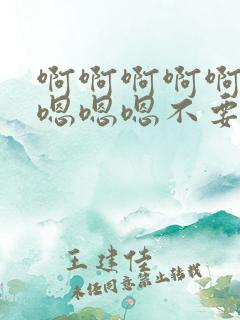 啊啊啊啊啊
嗯嗯嗯不要
王建佳
未经同意禁止转载